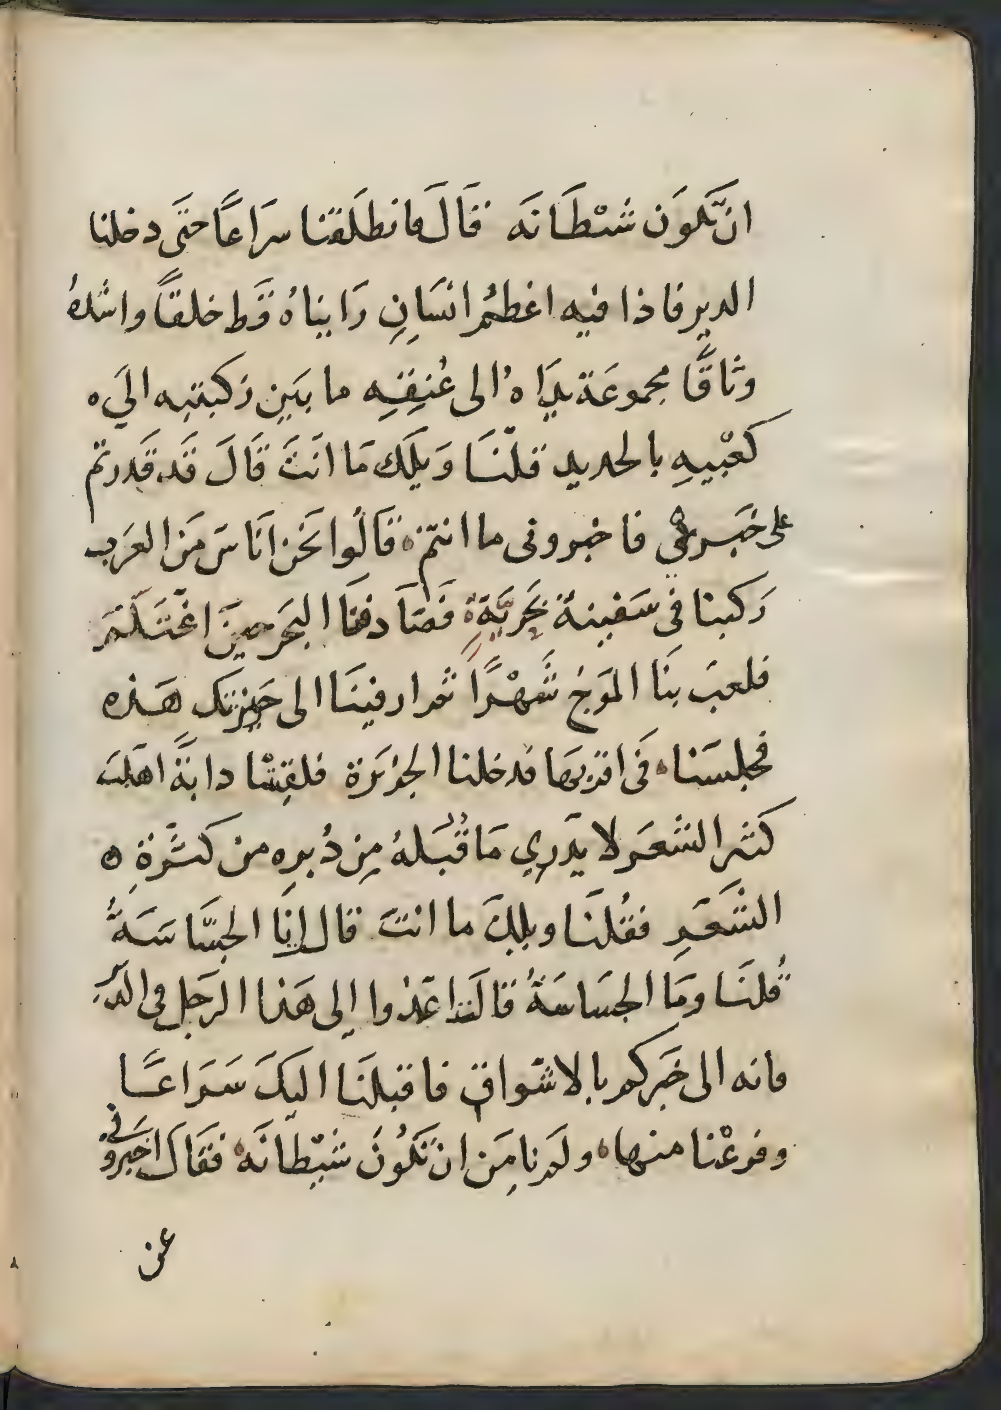 ان تكون شيطانه قال فانطلقنا سراعا حتى دخلنا
الدير فاذا فيه اعظم انسان رايناه قط خلقا واشده
وثاقا مجموعة يداه الى عنقه ما بين ركبتيه الى
كعبيه بالحديد قلنا ويلك ما انت قال قد قدرتم
على خبري فاخبروني ما انتم قالوا نحن اناس من العرب
ركبنا في سفينة بحرية فصادفنا البحر حين اغتلم
فلعب بنا الموج شهرا ثم ارفينا الى جزيرتك هذه
فجلسنا في اقربها فدخلنا الجزيرة فلقيتنا دابة اهلب
كثير الشعر لا يدري ما قبله من دبره من كثرة
الشعر فقلنا ويلك ما انت قال انا الجساسة
قلنا وما الجساسة قالت اعمدوا الى هذا الرجل في الدير
فانه الى خبركم بالاشواق فاقبلنا اليك سراعا
وفزعنا منها ولم نامن ان تكون شيطانه فقال اخبروني
عن